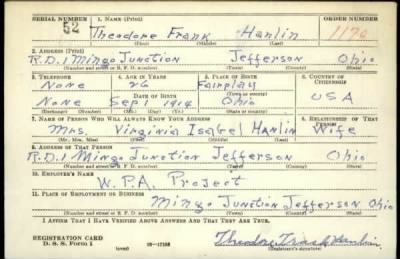 SERIAL NUMBER 1. NAME (Print) ORDER NUMBER
52 Theodore Frank Hanlin 1170
(First) (Middle) (Last)
2. ADDRESS (Print)
R.D.1 Mingo Junction Jefferson Ohio
(Number and street or R. F. D. number) (Town) (County) (State)
3. TELEPHONE 4. AGE IN YEARS 5. PLACE OF BIRTH 6. COUNTRY OF CITIZENSHIP
None 26 Fairplay
DATE OF BIRTH (Town or county)
None Sep 1 1914 Ohio USA
(Mo.) (Day) (Yr.) (State or country)
7. NAME OF PERSON WHO WILL ALWAYS KNOW YOUR ADDRESS 8. RELATIONSHIP OF THAT PERSON
Mrs. Virginia Isabel Hanlin Wife
(Mr., Mrs., Miss) (First) (Middle) (Last)
9. ADDRESS OF THAT PERSON
R.D.1 Mingo Junction Jefferson Ohio
(Number and street or R. F. D. number) (Town) (County) (State)
10. EMPLOYER'S NAME
W.P.A. Project
11. PLACE OF EMPLOYMENT OR BUSINESS
Mingo Junction Jefferson Ohio
(Number and street or R. F. D. number) (Town) (County) (State)
I AFFIRM THAT I HAVE VERIFIED ABOVE ANSWERS AND THAT THEY ARE TRUE.
REGISTRATION CARD
D. S. S. Form 1 (over) Theodore Frank Hanlin
(Registrant's signature)